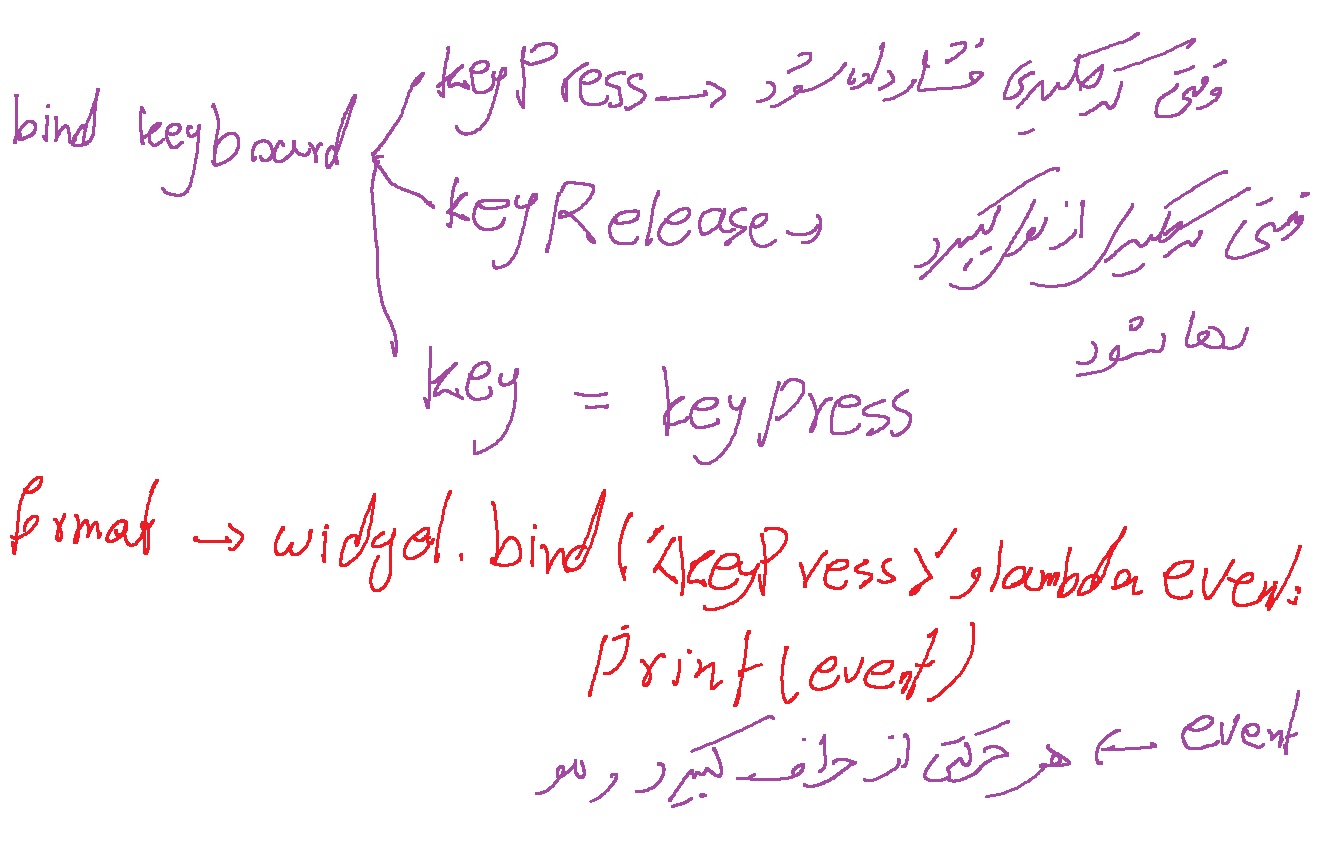 bind keyboard
keyPress → وقتی که کلیدی فشار داده شود
keyRelease → وقتی که کلید از کیبرد
رها شود
key = keyPress
format → widget.bind('<keyPress>', lambda event:
print(event)
event ← هر حرکتی از طرف کیبرد و موس